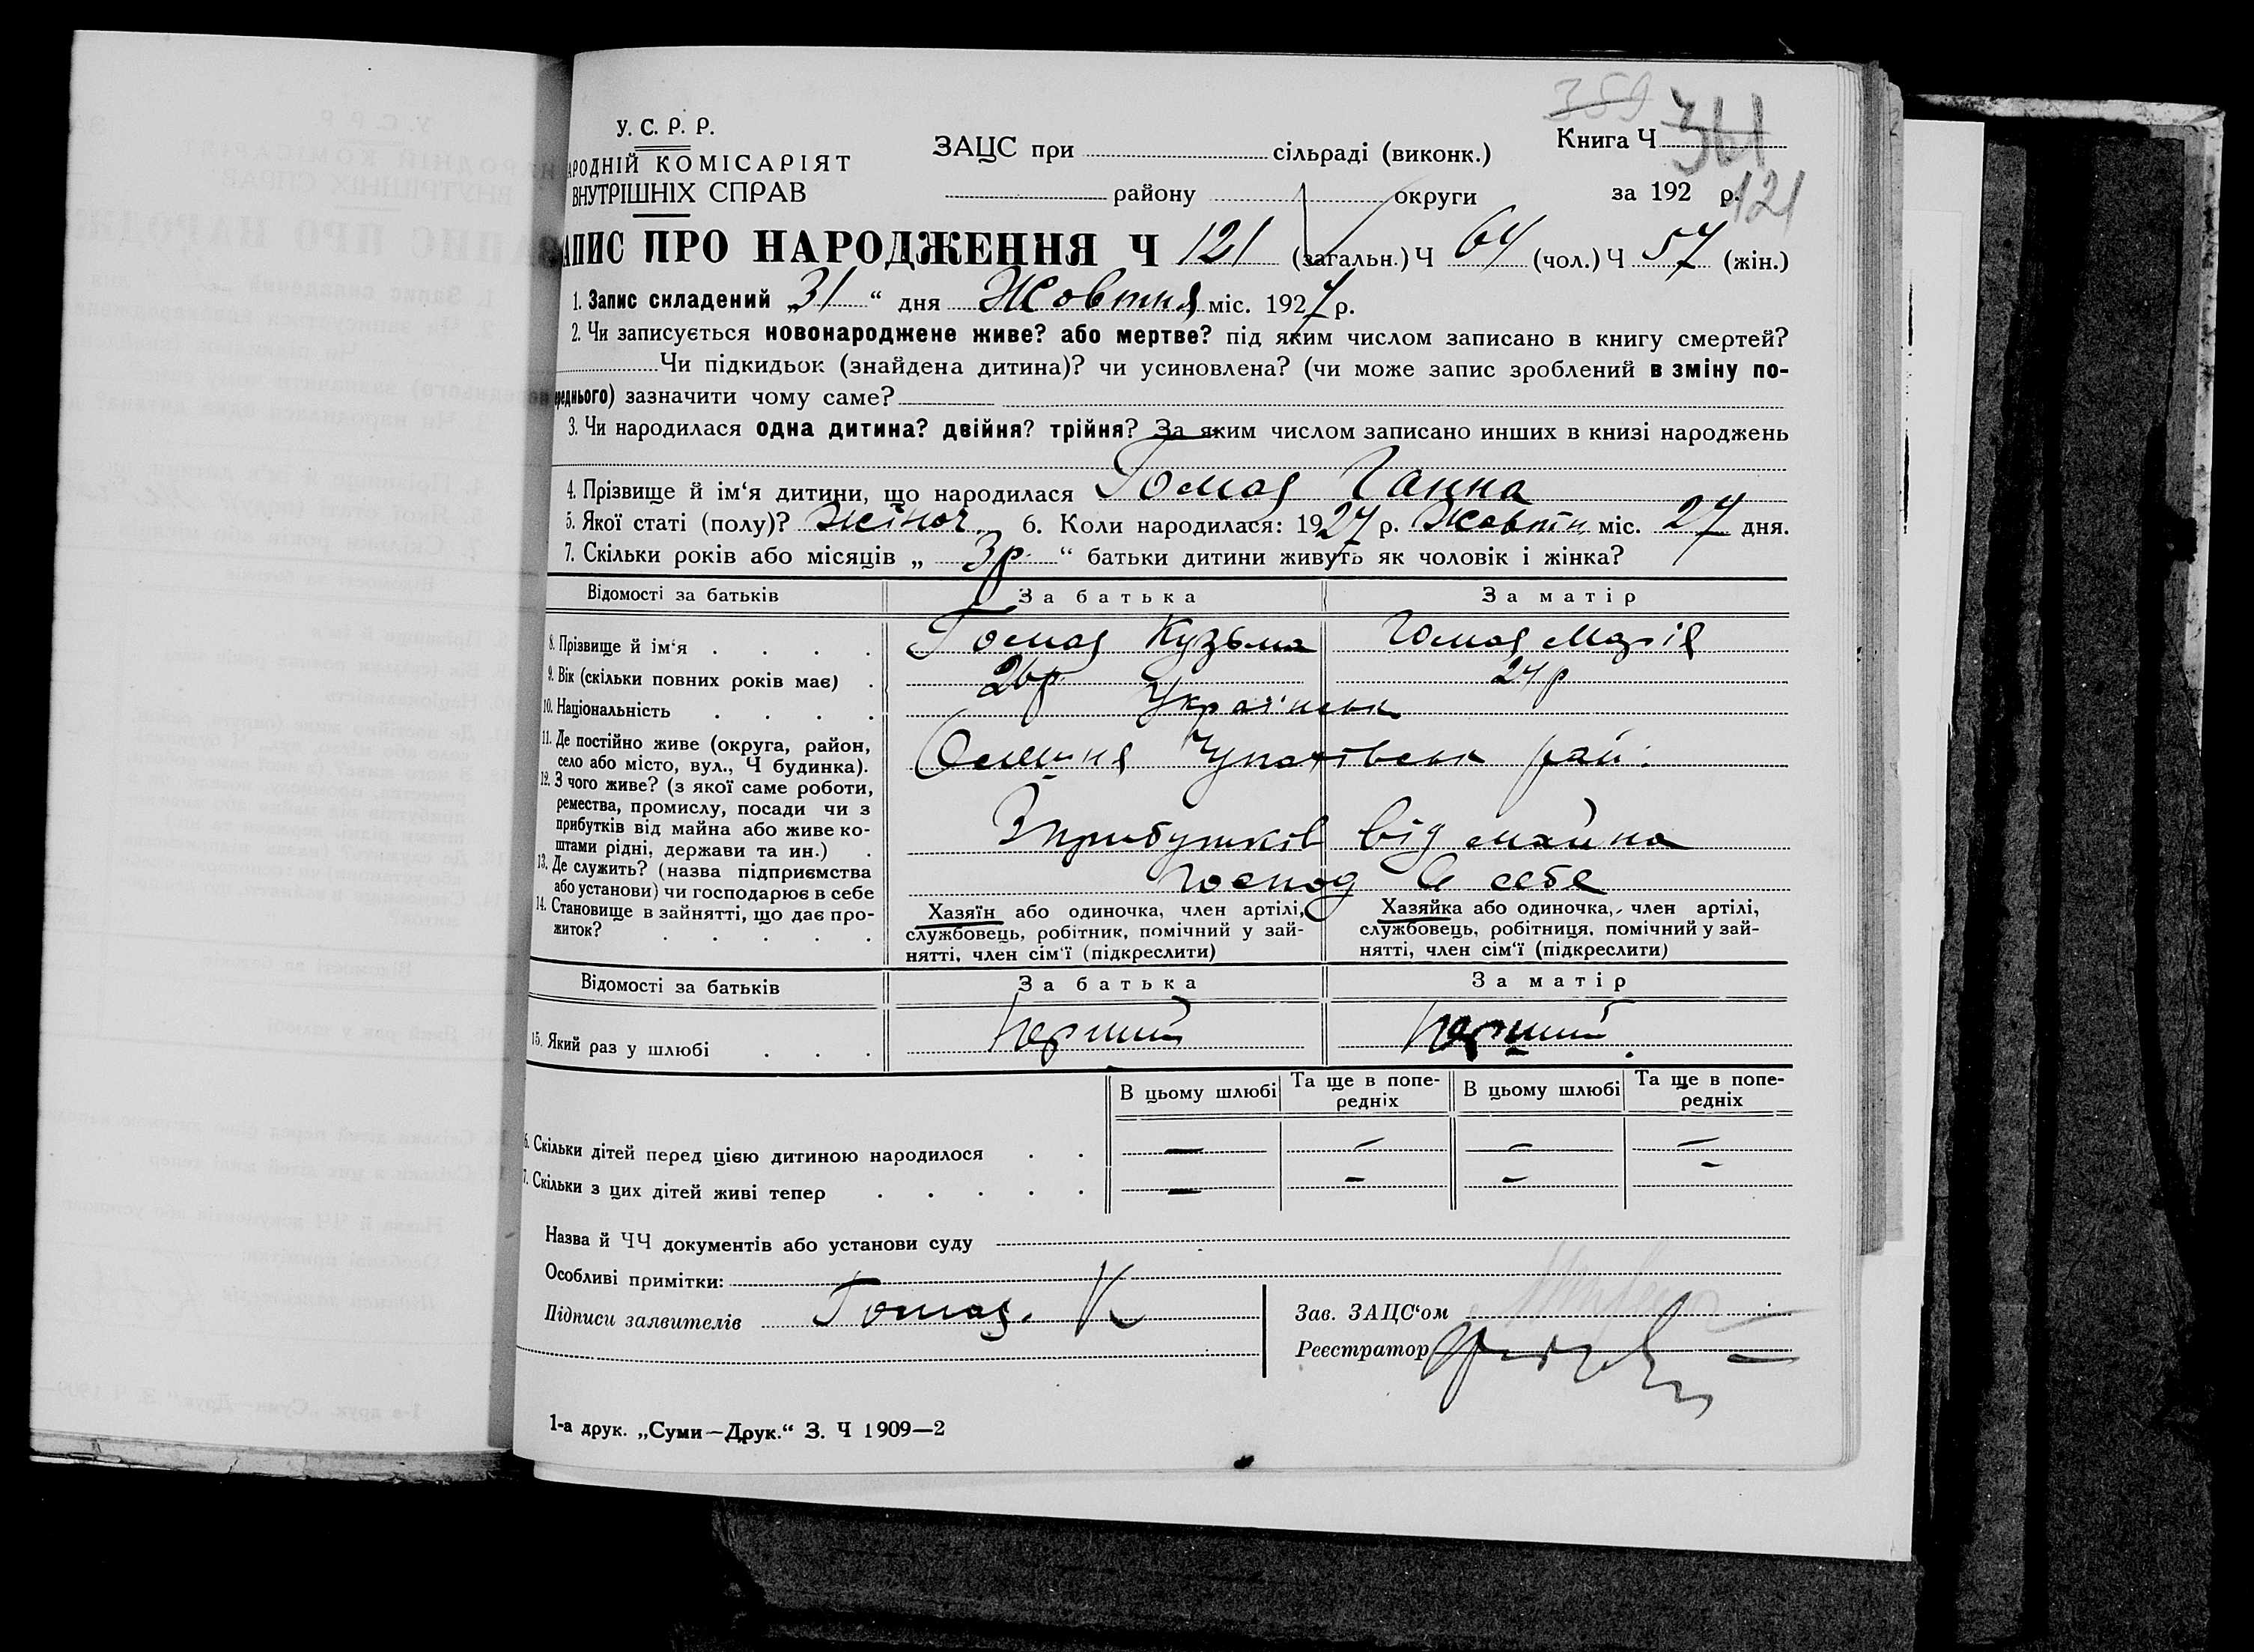 359
361
121
У. С. Р. Р.
АРОДНІЙ КОМІСАРІЯТ
ВНУТРІШНІХ СПРАВ
ЗАЦС при сільраді (виконк.)
Книга Ч
району округи
за 192 р.
АПИС ПРО НАРОДЖЕННЯ Ч 121 (загальн.) Ч 64 (чол.) Ч 57 (жін.)
1. Запис складений „31“ дня Жовтня міс. 1927 р.
2. Чи записується новонароджене живе? або мертве? під яким числом записано в книгу смертей?
Чи підкидьок (знайдена дитина)? чи усиновлена? (чи може запис зроблений в зміну по-
реднього) зазначити чому саме?
3. Чи народилася одна дитина? двійня? трійня? За яким числом записано инших в книзі народжень
4. Прізвище й ім‘я дитини, що народилася Гомоя Ганна
5. Якої статі (полу)? жіноч. 6. Коли народилася: 1927 р. Жовтн міс. 27 дня.
7. Скільки років або місяців „ 3р. “ батьки дитини живуть як чоловік і жінка?
Відомості за батьків За батька За матір
8. Прізвище й ім‘я Гомоя Кузьма Гомоя Марія
9. Вік (скільки повних років має) 26р 24р
10. Національність Україньськ
11. Де постійно живе (округа, район,
село або місто, вул., Ч будинка). Олешня Чупахівськ рай.
12. З чого живе? (з якої саме роботи,
ремества, промислу, посади чи з
прибутків від майна або живе ко-
штами рідні, держави та ин.) З прибутків від майна
13. Де служить? (назва підприємства
або установи) чи господарює в себе Господ в себе
14. Становище в зайнятті, що дає про-
житток? Хазяїн або одиночка, член артілі,
службовець, робітник, помічний у зай-
нятті, член сім‘ї (підкреслити)
Хазяйка або одиночка, член артілі,
службовець, робітниця, помічний у зай-
нятті, член сім‘ї (підкреслити)
Відомості за батьків За батька За матір
15. Який раз у шлюбі Перший Перший
В цьому шлюбі Та ще в попе-
редніх В цьому шлюбі Та ще в попе-
редніх
6. Скільки дітей перед цією дитиною народилося — — — —
7. Скільки з цих дітей живі тепер — — — —
Назва й ЧЧ документів або установи суду
Особливі примітки:
Підписи заявителів Гомоя К
Зав. ЗАЦС‘ом
Реєстратор
1-а друк. „Суми—Друк.“ З. Ч 1909—2